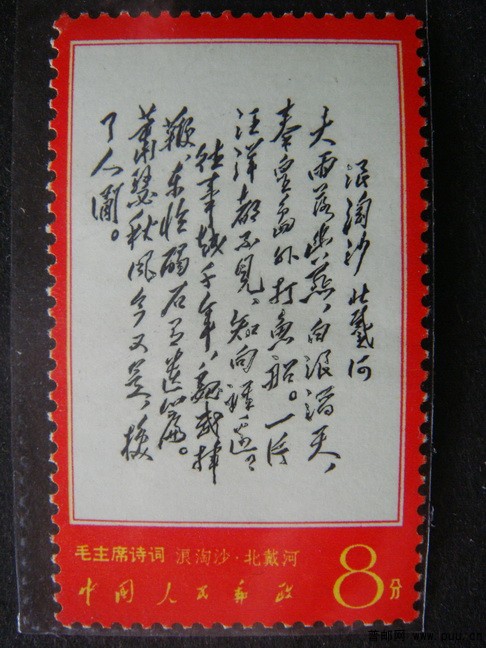 浪淘沙 北戴河
大雨落幽燕、白浪滔天、
秦皇島外打魚船。一片
汪洋都不見、知向誰邊
往事越千年、魏武揮
鞭、東臨碣石有遺篇。
蕭瑟秋風今又是、換
了人間。
毛主席诗词 浪淘沙·北戴河
中国人民邮政
8分
普邮网 www.puu.cn